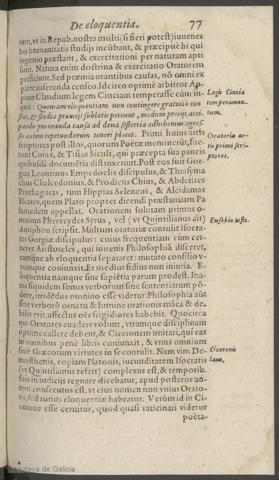 De eloquentia. 77
tam, vt in Repub. nostra multi (si fieri potest) iuuenes
his humanitatis studijs incūbant, & præcipuè hi qui
ingenio præstant, & exercitationi per naturam apti
sunt. Natura enim doctrina & exercitatio Oratorem
perficiunt. Sed præmia orantibus causas, nō omni ex
parte auferenda censeo. Id circo optimè arbitror Ap-
pium Claudium legem Cinciam temperasse cùm in-
quit: Quoniam eloquentiam non contingere gratuitò con-
stat, & studia præmijs sublatis pereunt, modum precijs
pro oranda causa ad dena sestertia adhibemus:
si autem repetundarum teneri placet. Primi huius artis
scriptores post illos, quorum Poëtæ meminerūt, fue-
runt Corax, & Tisias Siculi, qui præcepta sua paucis
quibusdā documētis distinxerunt. Post eos fuit Gor-
gias Leontinus Empedoclis discipulus, & Thrasyma
chus Chalcedonius, & Prodicus Chius, & Abderites
Prothagoras, tum Hippias Seleneus, & Alcidamas
Eleates, quem Plato propter dicendi præstantiam Pa
lamedem appellat. Orationem solutam primus o-
mnium Pherecydes Syrus, vel (vt Quintilianus ait)
Antiphon scripsit. Multum oratoriæ contulit Isocra-
tes Gorgiæ discipulus: cuius frequentiam cùm cer-
neret Aristoteles, qui iuuenis Philosophiā disceret,
eamque ab eloquentia separaret: mutato consilio v-
tramque coniunxit. Et medius fidius non iniuria. E-
loquentia namque sine sapiētia parum prodest. Ina-
nis siquidem sonus verborum sine sententiarum pō-
dere, irridēdus omnino esse videtur: Philosophia aūt
sine verborū ornatu & lumine orationis māca & de-
bilis erit, affectus oēs frigidiores habebit. Quocirca
qui Oratores euadere volunt, vtramque disciplinam
optimè callere debent, & Ciceronem imitari, qui eas
in omnibus penè libris coniunxit, & vnius omnium
ferè Græcorum virtutes in se contulit. Nam vim De-
mosthenis, copiam Platonis, iucunditatem Isocratis
(vt Quintilianus refert) complexus est, & temporib.
suis in iudicijs regnare dicebatur, apud posteros au-
tem consecutus est, vt eius nomen non vnius Orato-
ris, sed totius eloquentiæ habeatur. Verùm id in Ci-
cerone esse cernitur, quod quasi vaticinari videtur
poëta-
Legis Cincia
temperamen-
tum.
Oratoriæ ar-
tis primi scri-
ptores.
Eusebio teste.
Ciceronis
laus.
Biblioteca de Galicia